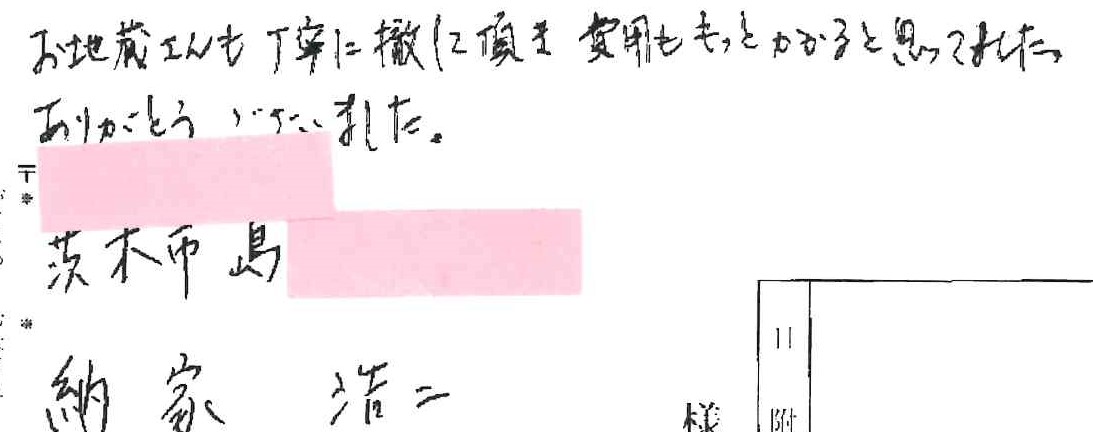 お地蔵さんも丁寧に撤して頂き 費用ももっとかかると思ってました。
ありがとうございました。
〒
※
茨木市 島
※
納家 浩二
様
日附